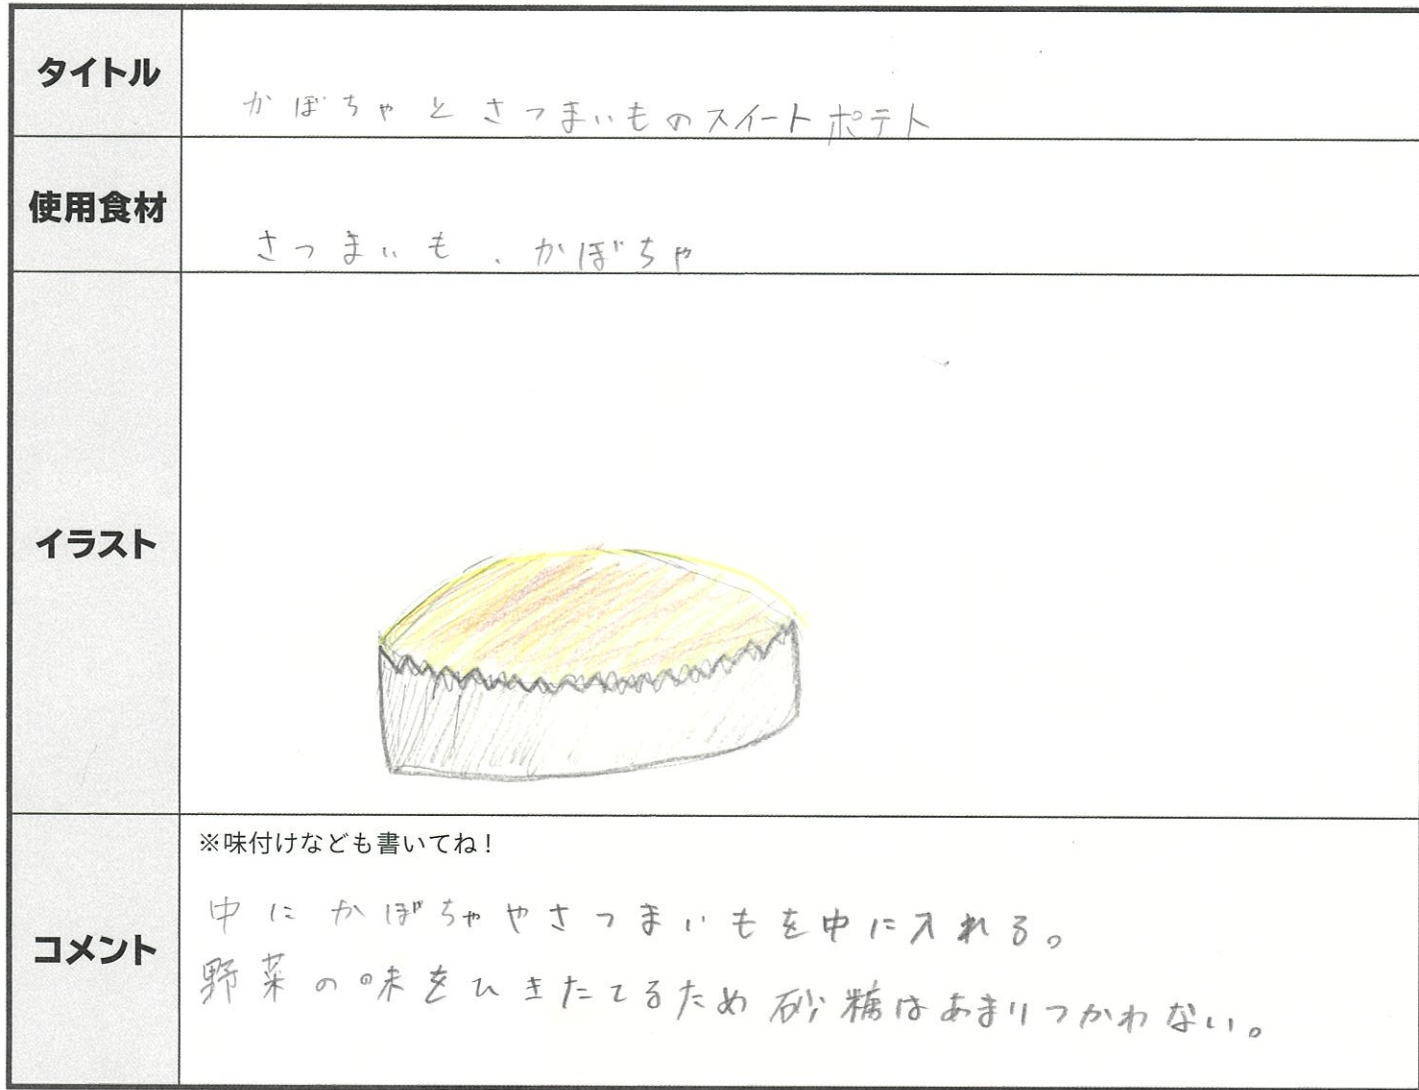 タイトル
かぼちゃとさつまいものスイートポテト
使用食材
さつまいも、かぼちゃ
イラスト
コメント
※味付けなども書いてね!
中にかぼちゃやさつまいもを中に入れる。
野菜の味をひきたてるため砂糖はあまりつかわない。